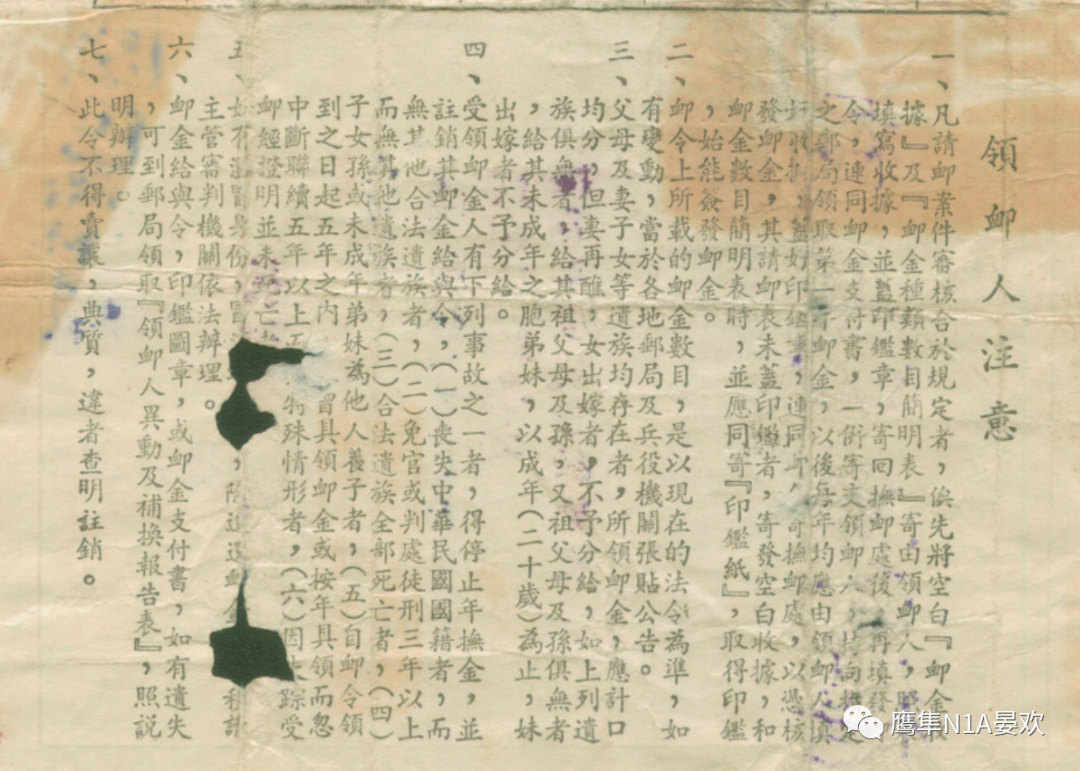 領卹人注意
一、凡請卹案件審核合於規定者，俟先將空白『卹金收
據』及『卹金種類數目簡明表』寄由領卹人，照
填寫收據，並蓋印鑑章，寄回撫卹處後，再填發卹
令，連同卹金支付書，一倂寄交領卹人，持向指定
之郵局領取第一年卹金，以後每年均應由領卹人填
好收據，蓋好印鑑章，連同，寄撫卹處，以憑核
發卹金，其請卹表未蓋印鑑者，寄發空白收據，和
卹金數目簡明表時，並應同寄『印鑑紙』，取得印鑑
，始能簽發卹金。
二、卹令上所載的卹金數目，是以現在的法令為準，如
有變動，當於各地郵局及兵役機關張貼公告。
三、父母及妻子女等遺族均存在者，所領卹金，應計口
均分，但妻再醮，女出嫁者，不予分給，如上列遺
族俱無者，給其祖父母及孫，又祖父母及孫俱無者
，給其未成年之胞弟妹，以成年（二十歲）為止，妹
出嫁者不予分給。
四、受領卹金人有下列事故之一者，得停止年撫金，並
註銷其卹金給與令，（一）喪失中華民國國籍者，而
無其他合法遺族者，（二）免官或判處徒刑三年以上
而無其他遺族者，（三）合法遺族全部死亡者，（四）
子女孫或未成年弟妹為他人養子者，（五）自卹令領
到之日起五年之內冒具領卹金或按年具領而忽
中斷聯續五年以上特殊情形者，（六）因失踪受
卹經證明並未死亡
五、如有冒身份，冒，除追還卹金
主管審判機關依法辦理。
六、卹金給與令，印鑑圖章，或卹金支付書，如有遺失
，可到郵局領取『領卹人異動及補換報告表』，照說
明辦理。
七、此令不得賣讓，典質，違者查明註銷。
鹰隼N1A晏欢